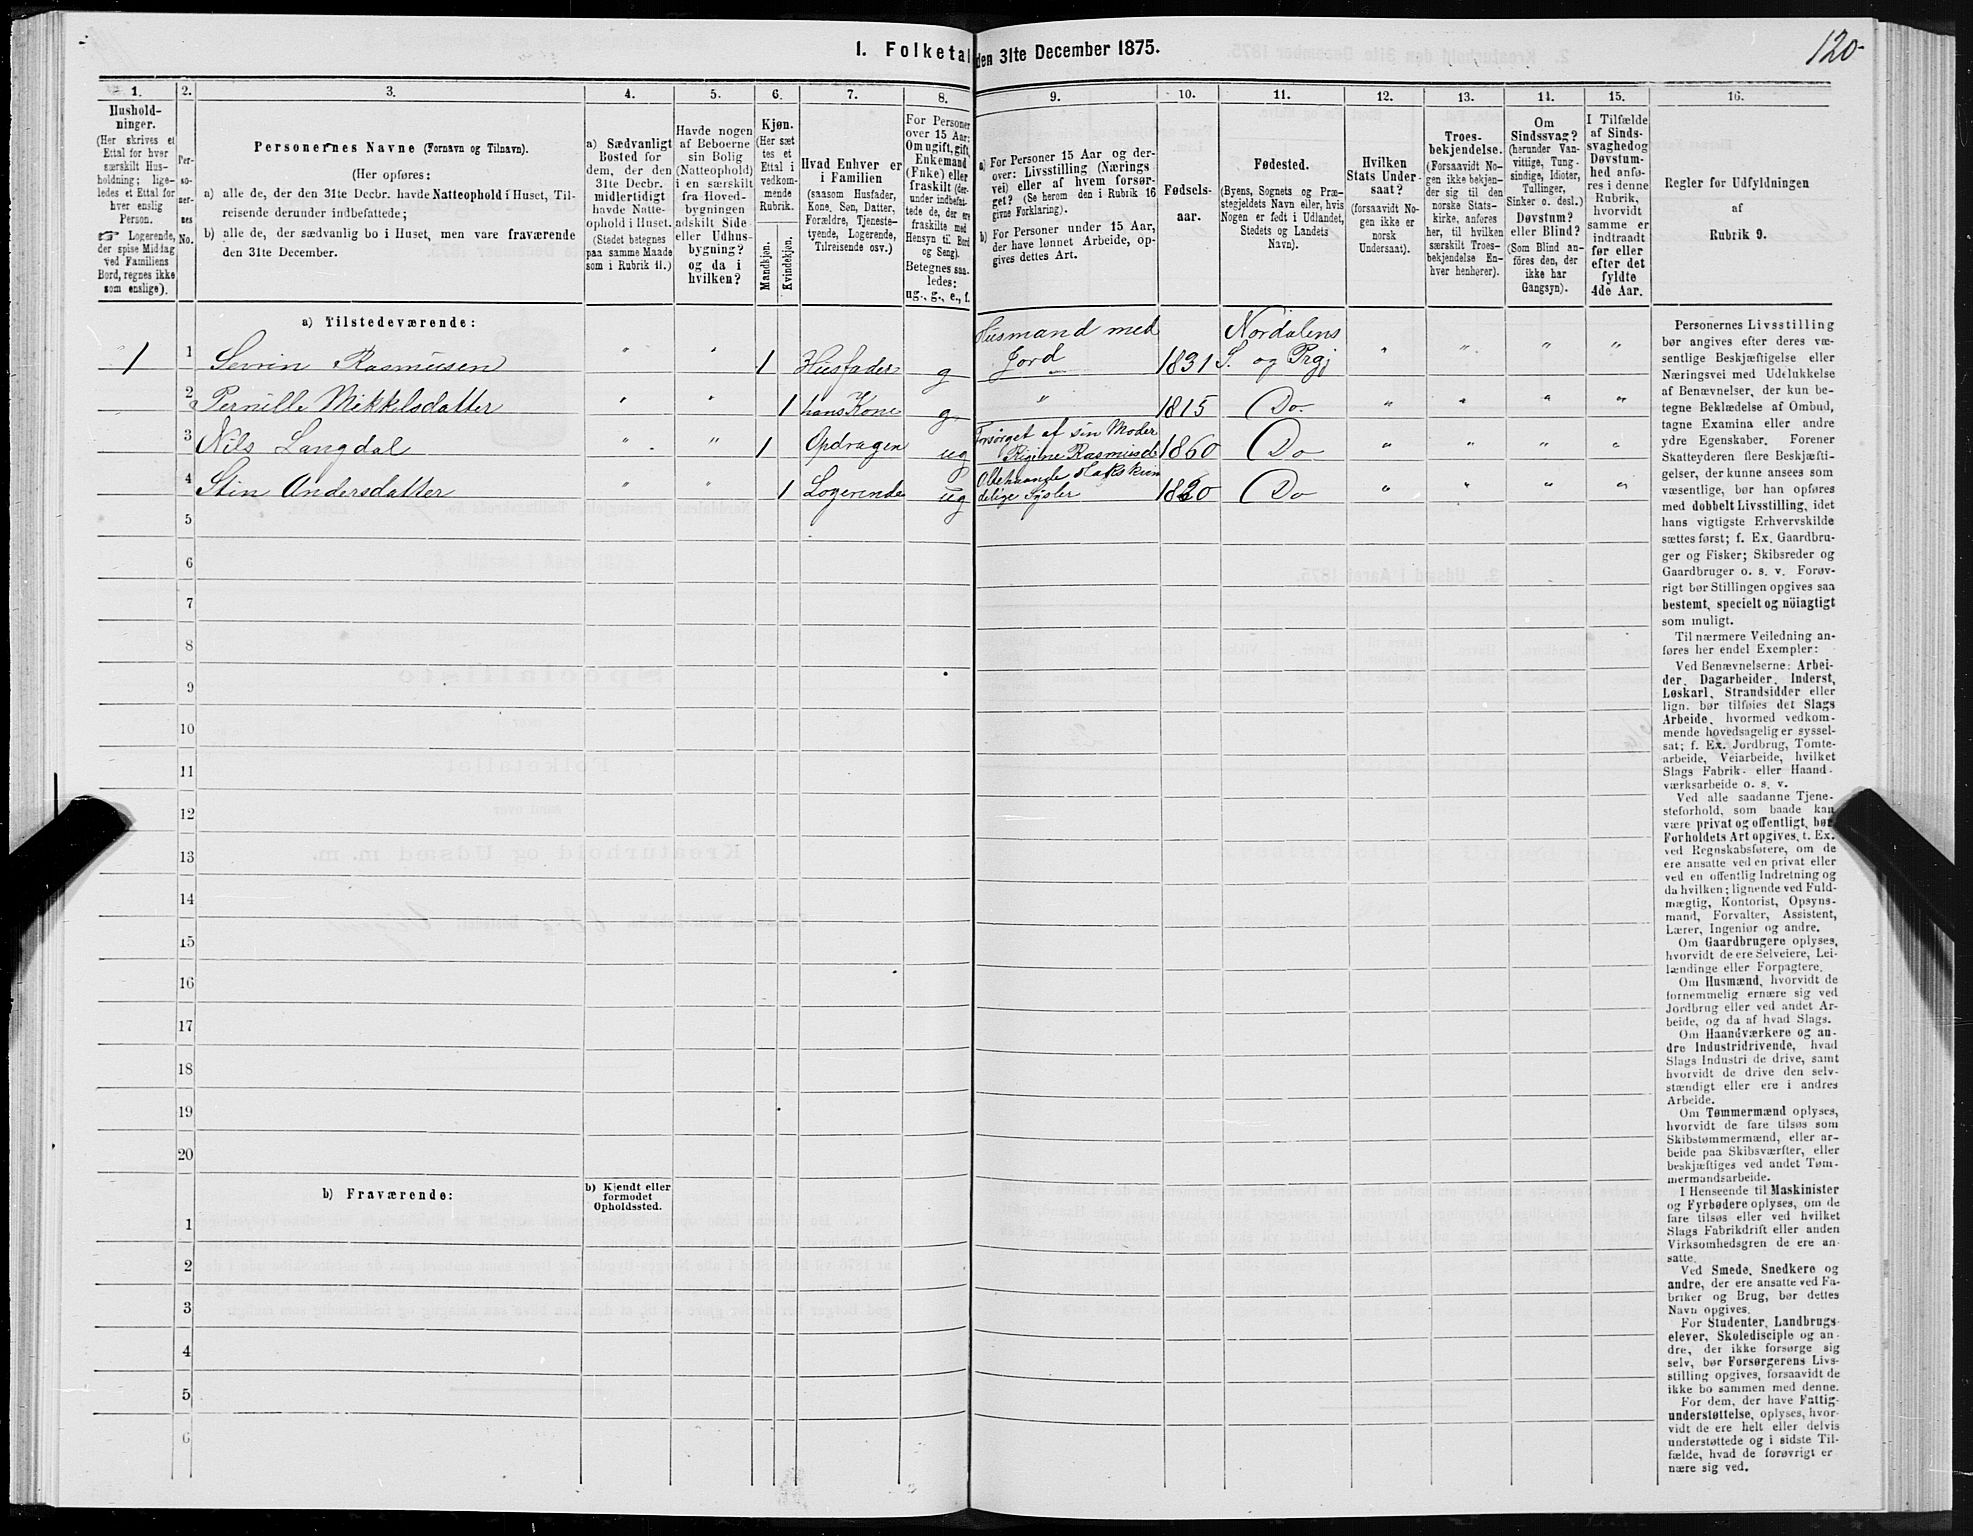 1. Folketal den 31te December 1875.
120
1.
Hushold-
ninger.
(Her skrives et
Ettal for hver
særskilt Hus-
holdning; lige-
ledes et Ettal for
hver enslig
Person.
☞ Logerende,
der spise Middag
ved Familiens
Bord, regnes ikke
som enslige).
2.
Per-
so-
ner-
nes
No.
3.
Personernes Navne (Fornavn og Tilnavn).
(Her opføres:
a) alle de, der den 31te Decbr. havde Natteophold i Huset, Til-
reisende derunder indbefattede;
b) alle de, der sædvanlig bo i Huset, men vare fraværende
den 31te December.
4.
a) Sædvanligt
Bosted for
dem, der den
31te Decbr.
midlertidigt
havde Natte-
ophold i Huset.
(Stedet betegnes
paa samme Maade
som i Rubrik 11.)
5.
Havde nogen
af Beboerne
sin Bolig
(Natteophold)
i en særskilt
fra Hoved-
bygningen
adskilt Side-
eller Udhus-
bygning?
og da i
hvilken?
6.
Kjøn.
(Her sæt
tes et
Ettal i
vedkom-
mende
Rubrik.
Mandkjøn.
Kvindekjøn.
7.
Hvad Enhver er
i Familien
(saasom Husfader,
Kone, Søn, Datter,
Forældre, Tjeneste-
tyende, Logerende,
Tilreisende osv.)
8.
For Personer
over 15 Aar:
Om ugift, gift,
Enkemand
(Enke) eller
fraskilt (der-
under indbefat-
tede de, der ere
fraskilte med
Hensyn til Bord
og Seng).
Betegnes saa-
ledes:
ug., g., e., f.
9.
a) For Personer 15 Aar og der-
over: Livsstilling (Nærings
vei) eller af hvem forsør-
get? (Se herom den i Rubrik 16
givne Forklaring).
b) For Personer under 15 Aar,
der have lønnet Arbeide, op-
gives dettes Art.
10.
Fødsels-
aar.
11.
Fødested.
(Byens, Sognets og Præ-
stegjeldets Navn eller, hvis
Nogen er født i Udlandet,
Stedets og Landets
Navn).
12.
Hvilken
Stats Under-
saat?
(forsaavidt No-
gen ikke er
norsk
Undersaat).
13.
Troes-
bekjendelse.
(Forsaavidt No-
gen ikke bekjen-
der sig til den
norske Stats-
kirke, anføres
her, til hvilken
særskilt Troes-
bekjendelse En-
hver henhører).
14.
Om
Sindssvag?
(herunder Van-
vittige, Tung-
sindige, Idioter,
Tullinger,
Sinker o. desl.)
Døvstum?
eller Blind?
(Som Blind an-
föres den, der
ikke har
Gangsyn).
15.
I Tilfælde
af Sinds-
svaghed og
Døvstum-
hed anfø-
res i denne
Rubrik,
hvorvidt
samme er
indtraadt
før eller
efter det
fyldte
4de Aar.
16.
Regler for Udfyldningen
af
Rubrik 9.
a) Tilstedeværende:
1 1 Sevrin Rasmusen " " 1 Husfader g Husmand med Jord 1831 Nordalens S. og Prgj " " " "
2 Pernille Mikkelsdatter " " 1 hans Kone g " 1815 Do. " " " "
3 Nils Langdal " " 1 Opdragen ug Forsørget af sin Moder Rigine Rasmusd 1860 Do " " " "
4 Stin Andersdatter " " 1 Logerende ug delige Sysler 1820 Do " " " "
5
6
7
8
9
10
11
12
13
14
15
16
17
18
19
20
b) Fraværende:
b) Kjendt eller
formodet
Opholdssted.
1
2
3
4
5
6
Personernes Livsstilling
bør angives efter deres væ-
sentlige Beskjæftigelse eller
Næringsvei med Udelukkelse
af Benævnelser, der kun be-
tegne Beklædelse af Ombud,
tagne Examina eller andre
ydre Egenskaber. Forener
Skatteyderen flere Beskjæfti-
gelser, der kunne ansees som
væsentlige, bør han opføres
med dobbelt Livsstilling, idet
hans vigtigste Erhvervskilde
sættes først; f. Ex. Gaardbru-
ger og Fisker; Skibsreder og
Gaardbruger o. s. v. Forøv-
rigt bør Stillingen opgives saa
bestemt, specielt og nöiagtigt
som muligt.
Til nærmere Veiledning an-
føres her endel Exempler:
Ved Benævnelserne: Arbei-
der, Dagarbeider, Inderst,
Løskarl, Strandsidder eller
lign. bør tilføies det Slags
Arbeide, hvormed vedkom-
mende hovedsagelig er syssel-
sat; f. Ex. Jordbrug, Tomte-
arbeide, Veiarbeide, hvilket
Slags Fabrik- eller Haand-
værksarbeide o. s. v.
Ved alle saadanne Tjene-
steforhold, som baade kan
være privat og offentligt, bør
Forholdets Art opgives, t. Ex.
ved Regnskabsførere, om de
ere ansatte ved en privat eller
ved en offentlig Indretning og
da hvilken; lignende ved Fuld-
mægtig, Kontorist, Opsyns-
mand, Forvalter, Assistent,
Lærer, Ingeniør og andre.
Om Gaardbrugere oplyses,
hvorvidt de ere Selveiere, Lei-
lændinge eller Forpagtere.
Om Husmænd, hvorvidt de
fornemmelig ernære sig ved
Jordbrug eller ved andet Ar-
beide, og da af hvad Slags.
Om Haandværkere og an-
dre Industridrivende, hvad
Slags Industri de drive, samt
hvorvidt de drive den selv-
stændigt eller ere i andres
Arbeide.
Om Tømmermænd oplyses,
hvorvidt de fare tilsøs som
Skibstømmermænd, eller ar-
beide paa Skibsværfter, eller
beskjæftiges ved andet Tøm-
mermandsarbeide.
I Henseende til Maskinister
og Fyrbødere oplyses, om de
fare tilsøs eller ved hvilket
Slags Fabrikdrift eller anden
Virksomhedsgren de ere an-
satte.
Ved Smede, Snedkere og
andre, der ere ansatte ved Fa-
briker og Brug, bør dettes
Navn opgives.
For Studenter, Landbrugs-
elever, Skoledisciple og an-
dre, der ikke forsørge sig
selv, bør Forsørgerens Livs-
stilling opgives, forsaavidt de
ikke bo sammen med denne.
For dem, der have Fattig-
understøttelse, oplyses, hvor-
vidt de ere helt eller delvis
understøttede og i sidste Til-
fælde, hvad de forøvrigt er-
nære sig ved.